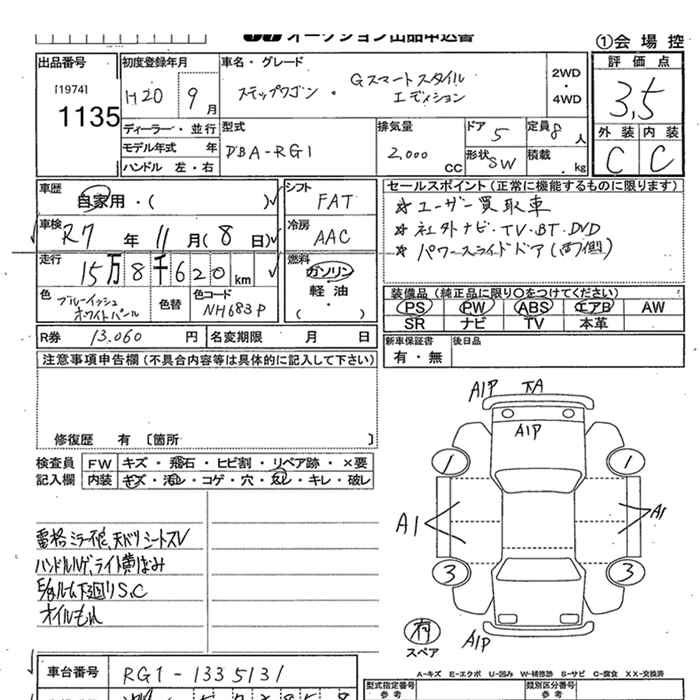 オークション出品申込書
①会場控
出品番号
[1974]
1135
初度登録年月
H20 9月
車名・グレード
ステップワゴン・Gスマートスタイル
エディション
2WD
・
4WD
評価点
3.5
外装 内装
C C
ディーラー・並行
モデル年式 年
ハンドル 左・右
型式
DBA-RG1
排気量
2,000 CC
ドア 5
形状 SW
定員 8人
積載 . kg
車歴
自家用・( )
車検
R7年11月(8日)
走行
15万8千620km
色
ブルーイッシュ
ホワイトパール
色替
色コード
NH683P
シフト
FAT
冷房
AAC
燃料
ガソリン
軽油
(・)
セールスポイント(正常に機能するものに限ります)
☆ユーザー買取車
☆社外ナビ・TV・BT・DVD
☆パワースライドドア(両側)
装備品(純正品に限り○をつけてください)
PS PW ABS エアB AW
SR ナビ TV 本革
R券 13.060円
名変期限 月 日
新車保証書
有・無
後日品
注意事項申告欄(不具合内容等は具体的に記入して下さい)
修復歴 有 〔箇所 〕
検査員
記入欄
FW キズ・飛石・ヒビ割・リペア跡・×要
内装 キズ・汚れ・コゲ・穴・ヘコ・キレ・破レ
ハンドルハゲ、ライト黄ばみ
下廻りS,C
オイルもれ
A1P
A1P
1 1
A1 A1
3 3
有
スペア
A1P
A-キズ E-エクボ U-凹み W-補修跡 S-サビ C-腐食 XX-交換済
車台番号
RG1-1335131
型式指定番号
参考
類別区分番号
参考